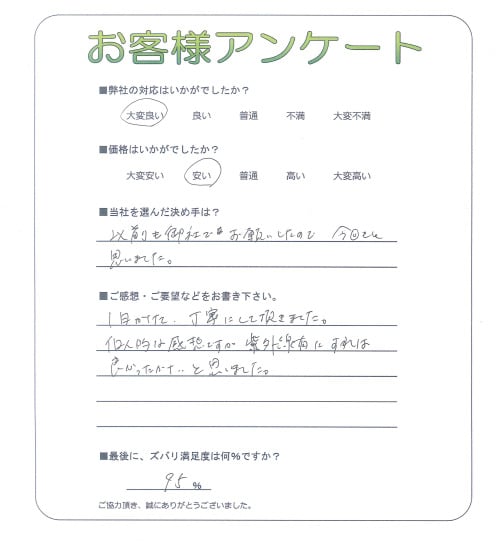 お客様アンケート
■弊社の対応はいかがでしたか？
大変良い 良い 普通 不満 大変不満
■価格はいかがでしたか？
大変安い 安い 普通 高い 大変高い
■当社を選んだ決め手は？
以前も御社でお願いしたので 今回も
思いました。
■ご感想・ご要望などをお書き下さい。
1日かけて、丁寧にして頂きました。
個人的な感想ですが 紫外線 にすれば
良かったかナ‥と思いました。
■最後に、ズバリ満足度は何%ですか？
95 %
ご協力頂き、誠にありがとうございました。